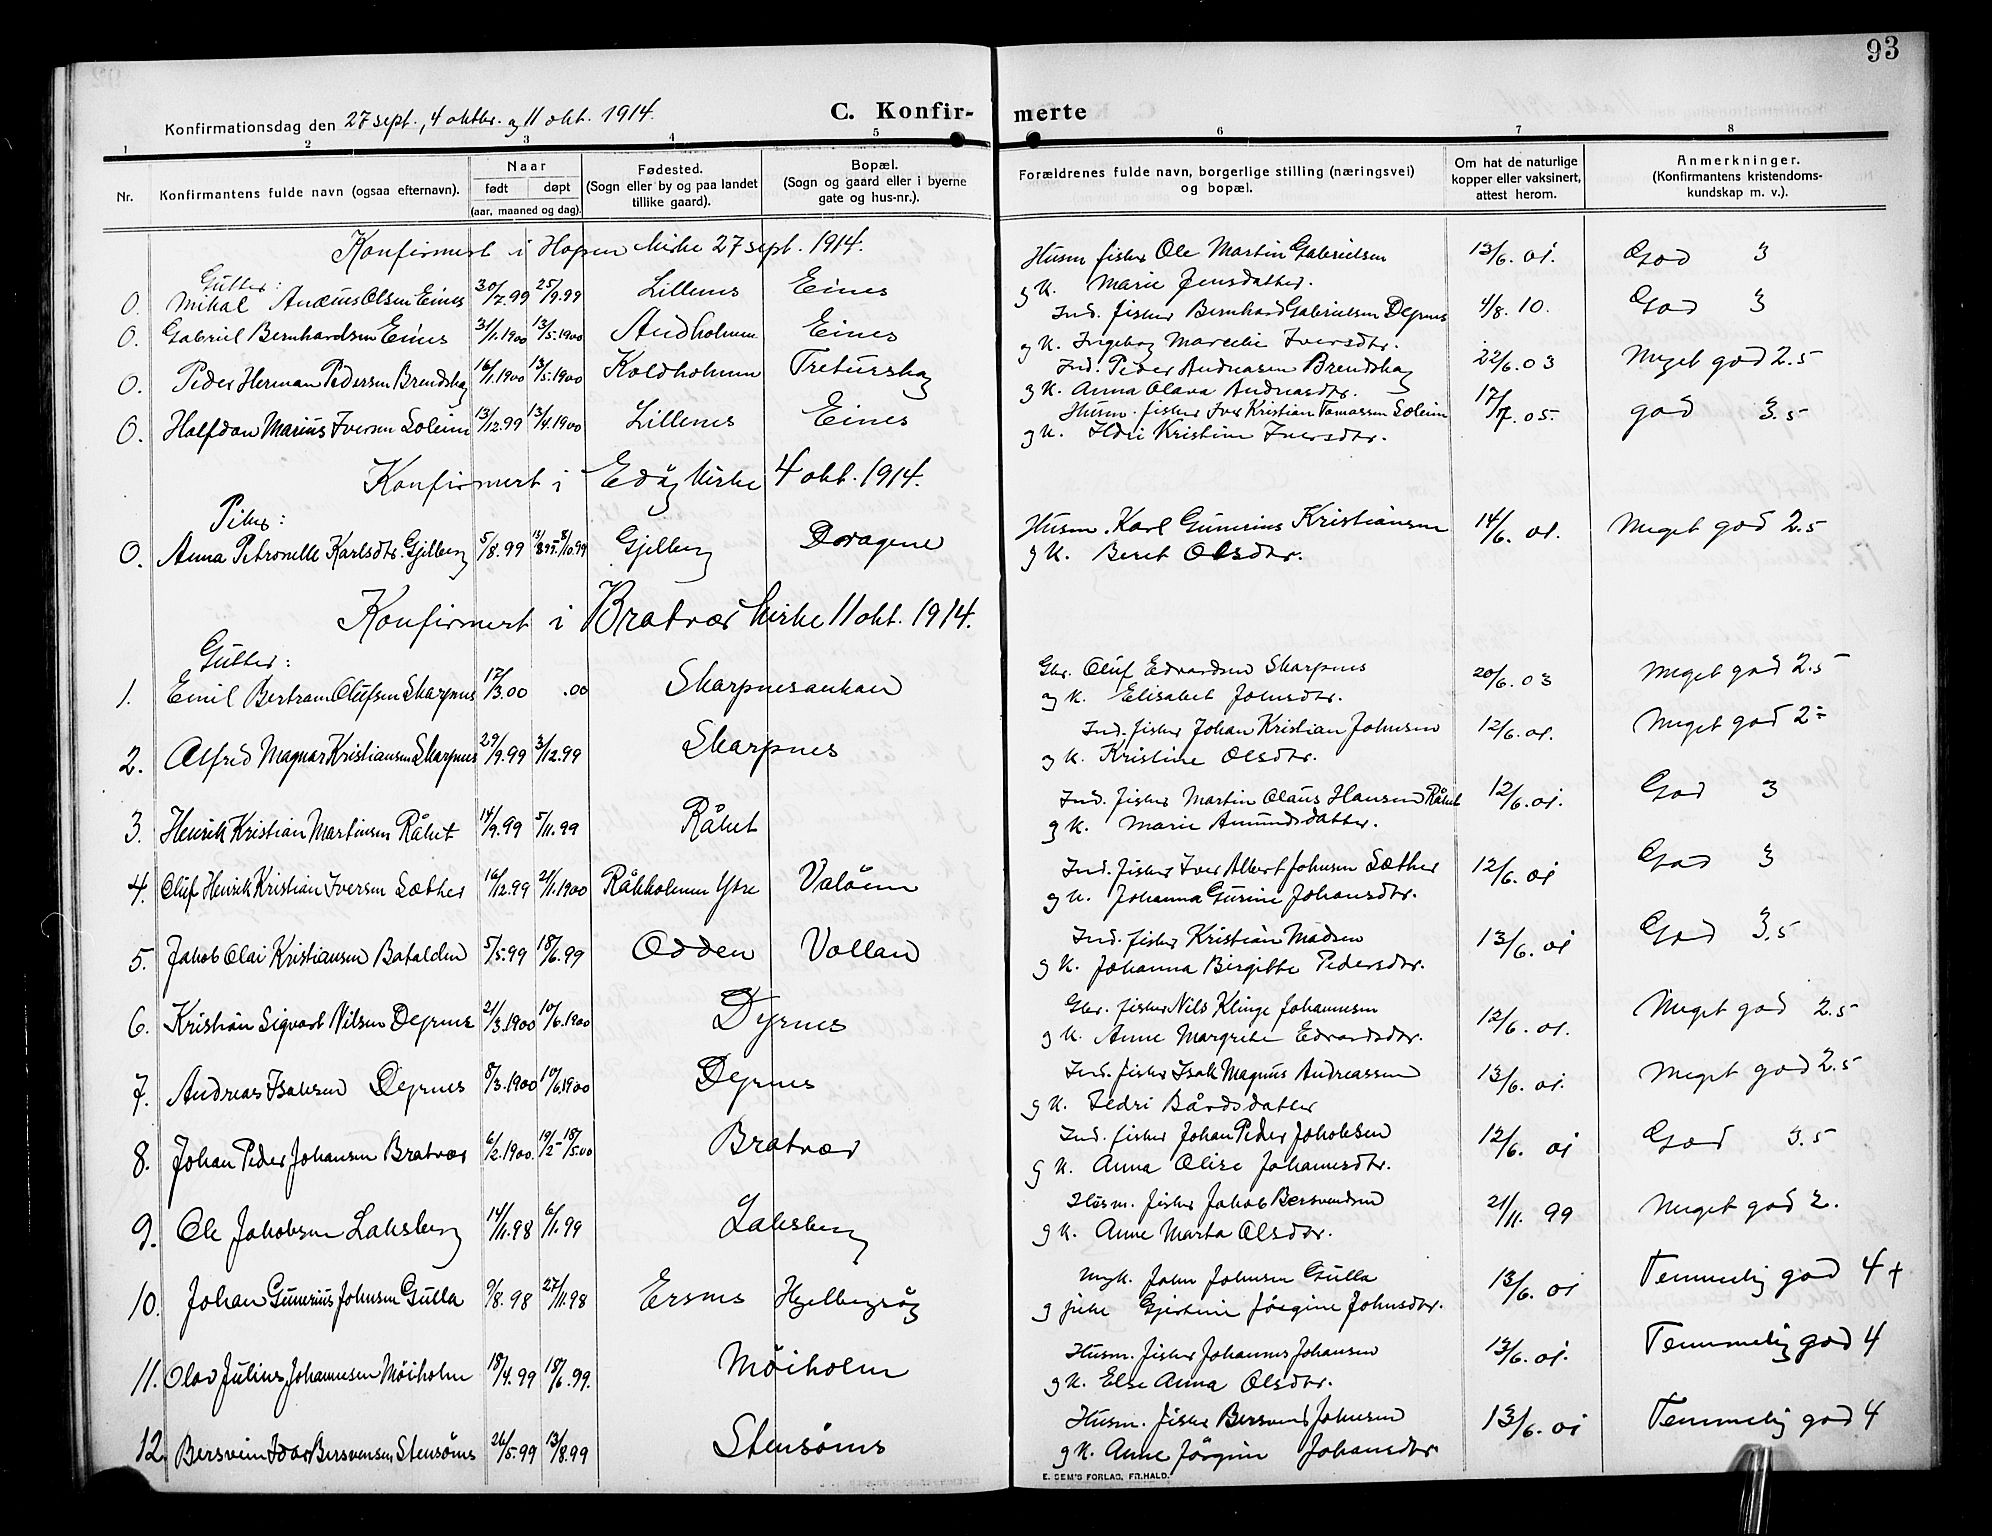 93
C. Konfirmerte
Konfirmationsdag den 27 sept., 4 oktbr. og 11 okt. 1914.
1 2 3 4 5 6 7 8
Nr. Konfirmantens fulde navn (ogsaa efternavn). Naar født døpt (aar, maaned og dag). Fødested. (Sogn eller by og paa landet tillike gaard). Bopæl. (Sogn og gaard eller i byerne gate og hus-nr.). Forældrenes fulde navn, borgerlige stilling (næringsvei) og bopæl. Om hat de naturlige kopper eller vaksinert, attest herom. Anmerkninger. (Konfirmantens kristendomskundskap m. v.).
Konfirmert i Hopen kirke 27 sept. 1914.
Gutter:
0. Mikal Olsen Eines 30/7.99 25/9.99 Lillenes Eines Husm fisker Ole Martin Gabrielsen 13/6.01. God 3
g k. Marie Jensdatter.
0. Gabriel Bernhardsen Eines 31/1.1900 13/5.1900 Andholmen Eines Ind. fisker Bernhard Gabrielsen Dyrnes 4/8.10. God 3
g k. Ingebog Iversdtr.
0. Peder Herman Pedersen Brendskag 16/1.1900 13/5.1900 Koldholmen Ind. Peder Andreasen Brendskag 22/6.03 Meget god 2.5
g k. Anna Olava Andreasdtr.
0. Halfdan Marius Iversen Soleim 13/12.99 13/4.1900 Lillenes Eines Husm. fisker Iver Kristian Tomassen Soleim 17/7.05. god 3.5
g k. Ildri Kristine Iversdtr.
Konfirmert i Edøy kirke 4 okt. 1914.
Piker:
0. Anna Petronelle Karlsdtr. Gjelberg 5/8.99 13/8 99 - 8/10.99 Gjelberg Doragene Husm. Karl Gunerius Kristiansen 14/6.01. Meget god 2.5
g k. Beret Olsdtr.
Konfirmert i Bratvær kirke 11 okt. 1914.
Gutter:
1. Emil Bertram Olufsen Skarpnes 17/3.00 .00 Skarpnesaukan Gbr. Oluf Edvardsen Skarpnes 20/6.03 Meget god 2.5
og k. Elisabet Johnsdtr.
2. Alfred Magnar Kristiansen Skarpnes 29/9.99 3/12.99 Skarpnes Ind. fisker Johan Kristian Johnsen 12/6.01. Meget god 2÷
og k. Kristine Olsdtr.
3. Henrik Kristian Martinsen Råket 14/9.99 5/11.99 Råket Ind. fisker Martin Olaus Hansen Råket 12/6.01. God 3
g k. Marie Amundsdatter.
4. Oluf Henrik Kristian Iversen Sæther 16/12.99 21/1.1900 Råkholmen Ytre Valøen Ind. fisker Iver Albert Johnsen Sæther 12/6.01 God 3
og k. Johanna Gurine Johansdtr.
5. Jakob Olai Kristiansen Batalden 5/5.99 18/6.99 Odden Vollan Ind. fisker Kristian Madsen 13/6.01 God 3.5
g k. Johanna Birgitte Pedersdtr.
6. Kristian Sigvart Nilsen Dyrnes 21/3.1900 10/6.1900 Dyrnes Gbr. fisker Nils Klinge Johannesen 12/6.01. Meget god 2.5
g k. Anne Margrete Edvardsdtr.
7. Andreas Isaksen Dyrnes 8/3.1900 10/6.1900 Dyrnes Ind. fisker Isak Magnus Andreassen 13/6.01. Meget god 2.5
g k. Ildri Bårdsdatter
8. Johan Peder Johansen Bratvær 6/2.1900. 19/2 - 18/5.00 Bratvær Ind. fisker Johan Peder Jakobsen 12/6.01 God 3.5
g k. Anna Olise Johannesdtr.
9. Ole Jakobsen Laksberg 14/11.98 6/1.99 Laksberg Husm. fisker Jakob Bersvendsen 21/11.99 Meget god 2.
g k. Anne Marta Olsdtr.
10. Johan Gunerius Johnsen Gulla 9/8.98 27/11.98 Ersnes Ungk. John Johnsen Gulla 13/6.01 Temmelig god 4+
g pike Gjertine Jørgine Johnsdtr.
11. Olav Julius Johannesen Möiholm 18/4.99 18/6.99. Möiholm Husm. fisker Johannes Johansen 13/6.01. Temmelig god 4
g k. Else Anna Olsdtr.
12. Bersvein Ivar Bersvensen Stensönes 26/5.99 13/8.99 Stensönes Husm. fisker Bersvend Johnsen 13/6.01 Temmelig god 4
g k. Anne Jörgine Johansdtr.
E. SEM'S FORLAG, FR.HALD.